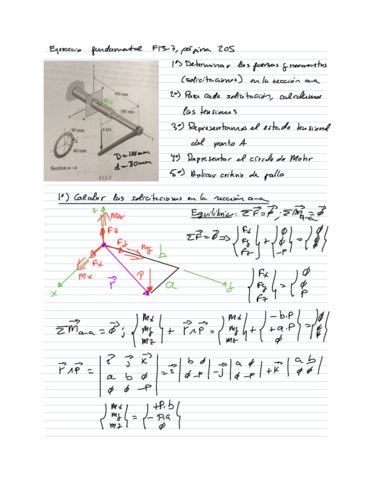 Ejercicio fundamental F13-7, página 205
1º) Determinar las fuerzas y momentos
(solicitaciones) en la sección a-a
2º) Para cada solicitación, calculamos
las tensiones
3º) Representamos el estado tensional
del punto A
4º) Representar el círculo de Mohr
5º) Aplicar criterio de fallo
300 mm
300 mm
6 kN
50 mm
40 mm
A
Section a–a
F13-7
D=100mm
d=80mm
1º) Calcular las solicitaciones en la sección a-a
Equilibrio: ΣF=φ; ΣM a-a=φ
ΣF=φ ⇒ {Fx Fy Fz} + {φ φ -P} = {φ φ φ}
{Fx Fy Fz} = {φ φ P}
z Mz Fz Fy My b
Fx Mx r P a
x y
ΣM a-a = φ; {Mx My Mz} + r∧P = {Mx My Mz} + {-b·P +a·P φ} = {φ φ φ}
r∧P = |i j k; a b φ; φ φ -P| = i |b φ; φ -P| -j |a φ; φ -P| + k |a b; φ φ|
{Mx My Mz} = {+P·b -P·a φ}